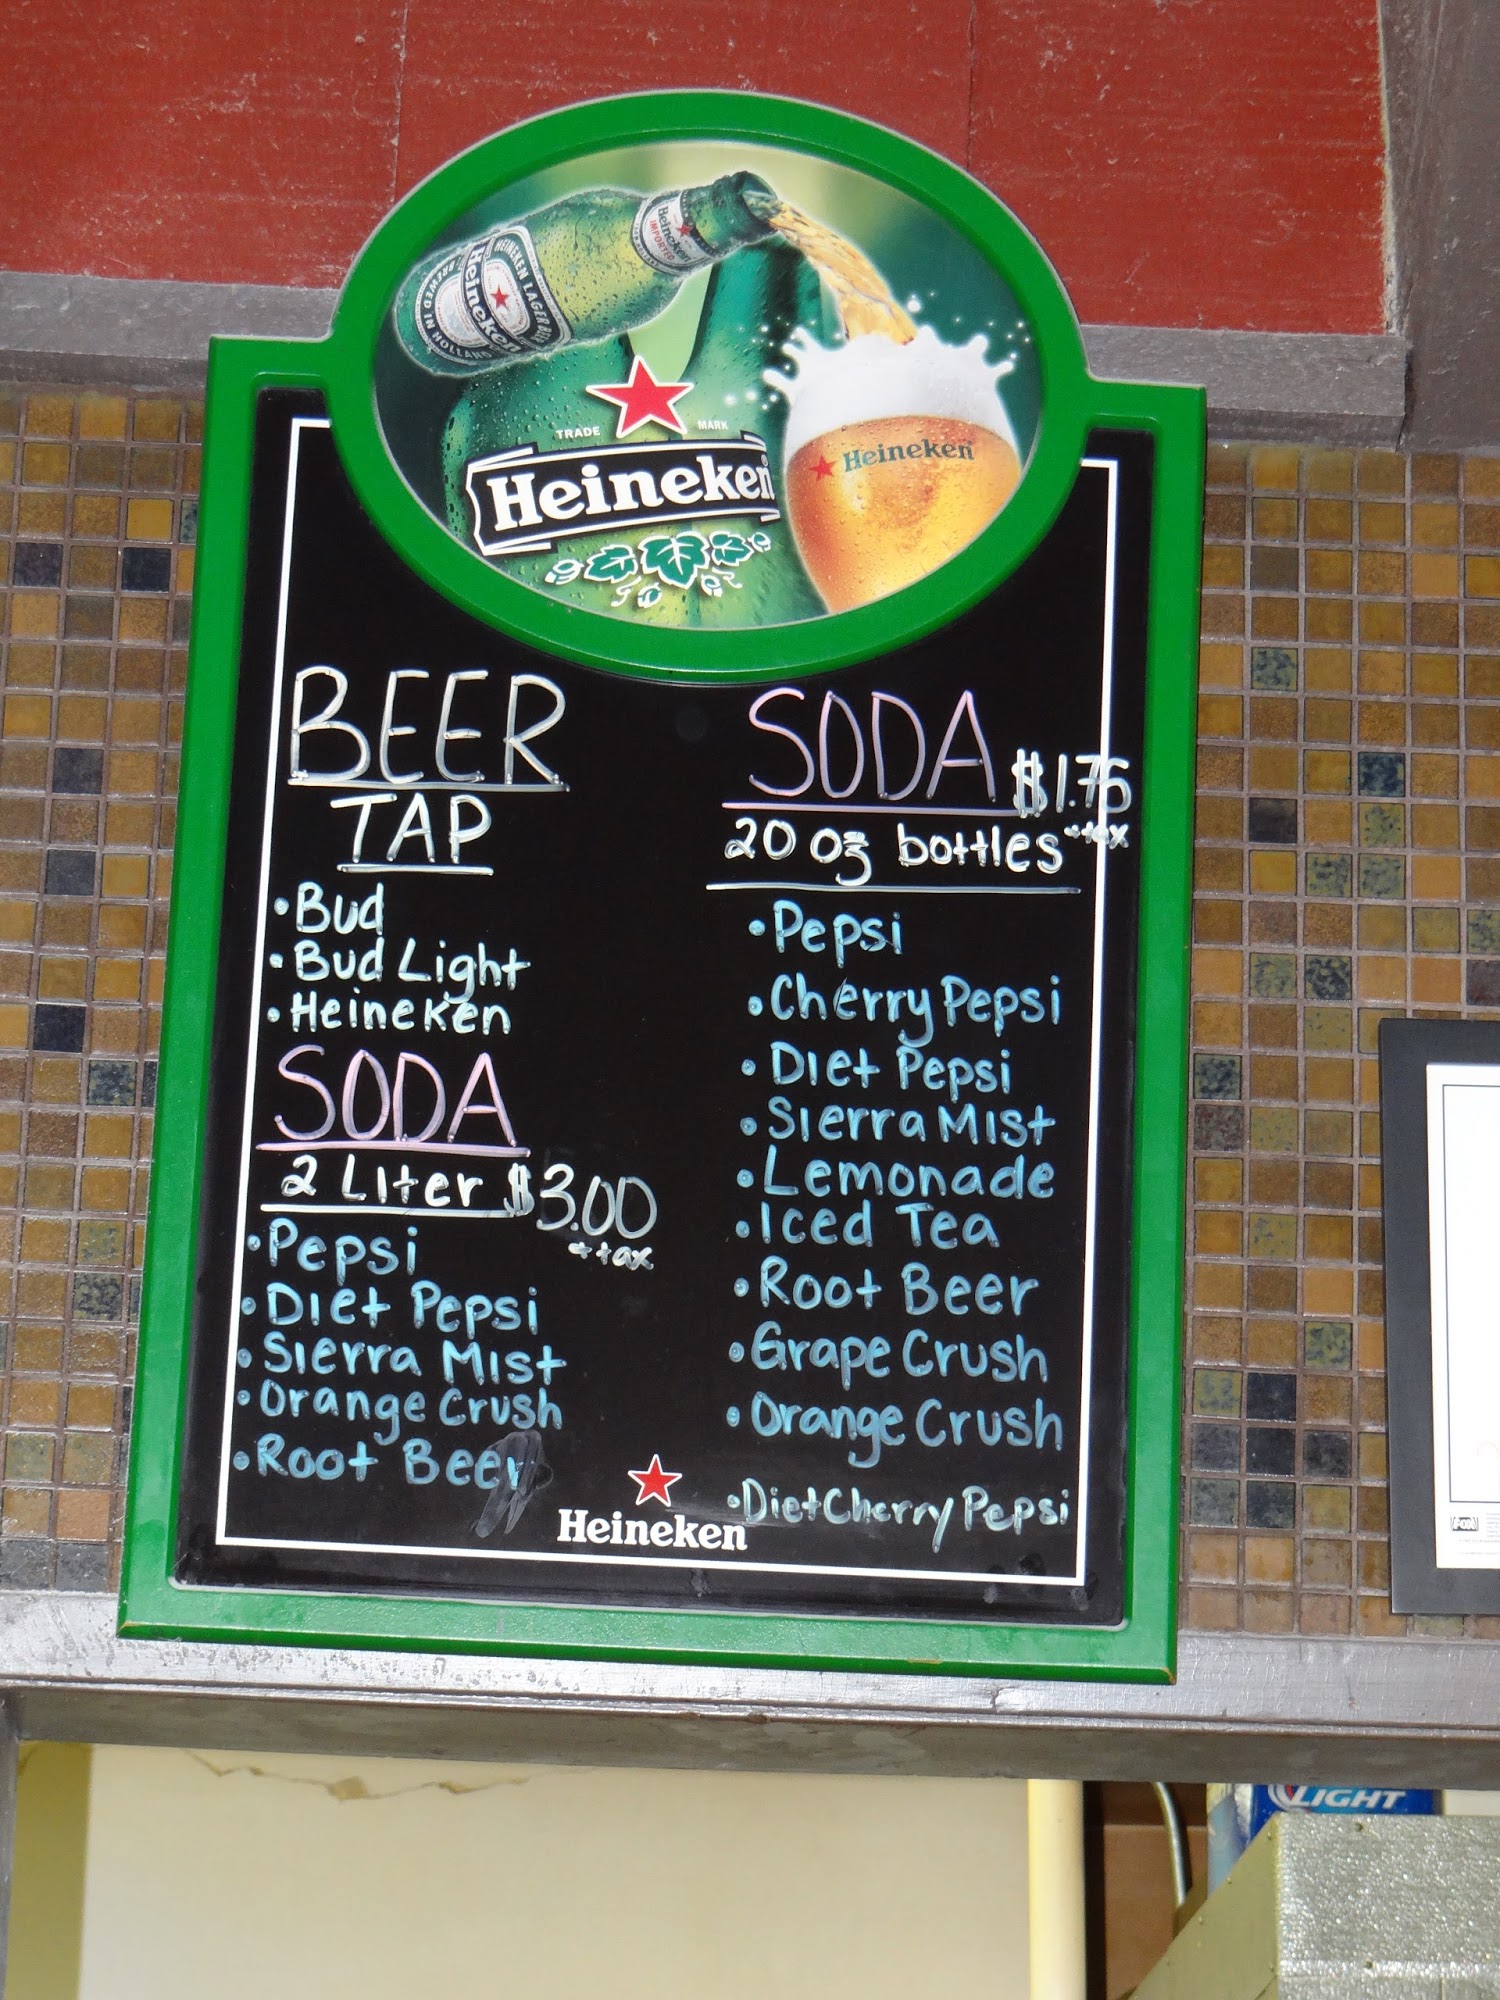 HEINEKEN LAGER BEER
Heineken
BREWED IN HOLLAND
Heineken
IMPORTED
TRADE MARK
Heineken
Heineken
BEER
TAP
•Bud
•Bud Light
•Heineken
SODA
2 Liter $3.00
+tax
•Pepsi
•Diet Pepsi
•Sierra Mist
•Orange Crush
•Root Beer
SODA $1.75
20 oz bottles +tax
•Pepsi
•Cherry Pepsi
•Diet Pepsi
•Sierra Mist
•Lemonade
•Iced Tea
•Root Beer
•Grape Crush
•Orange Crush
•Diet Cherry Pepsi
Heineken
LIGHT